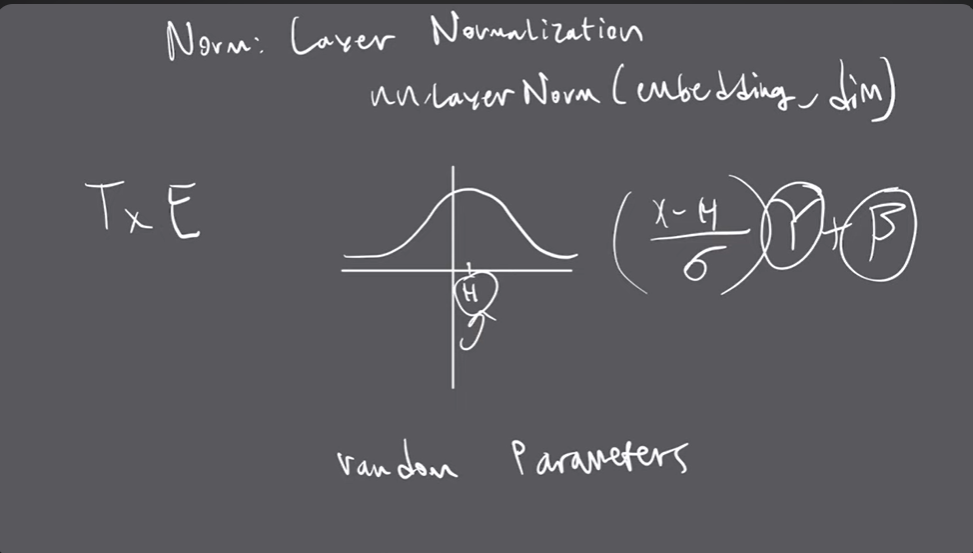 Norm: Layer Normalization
nn.LayerNorm(embedding_dim)
T x E
(x-μ / σ) γ + β
μ
random Parameters